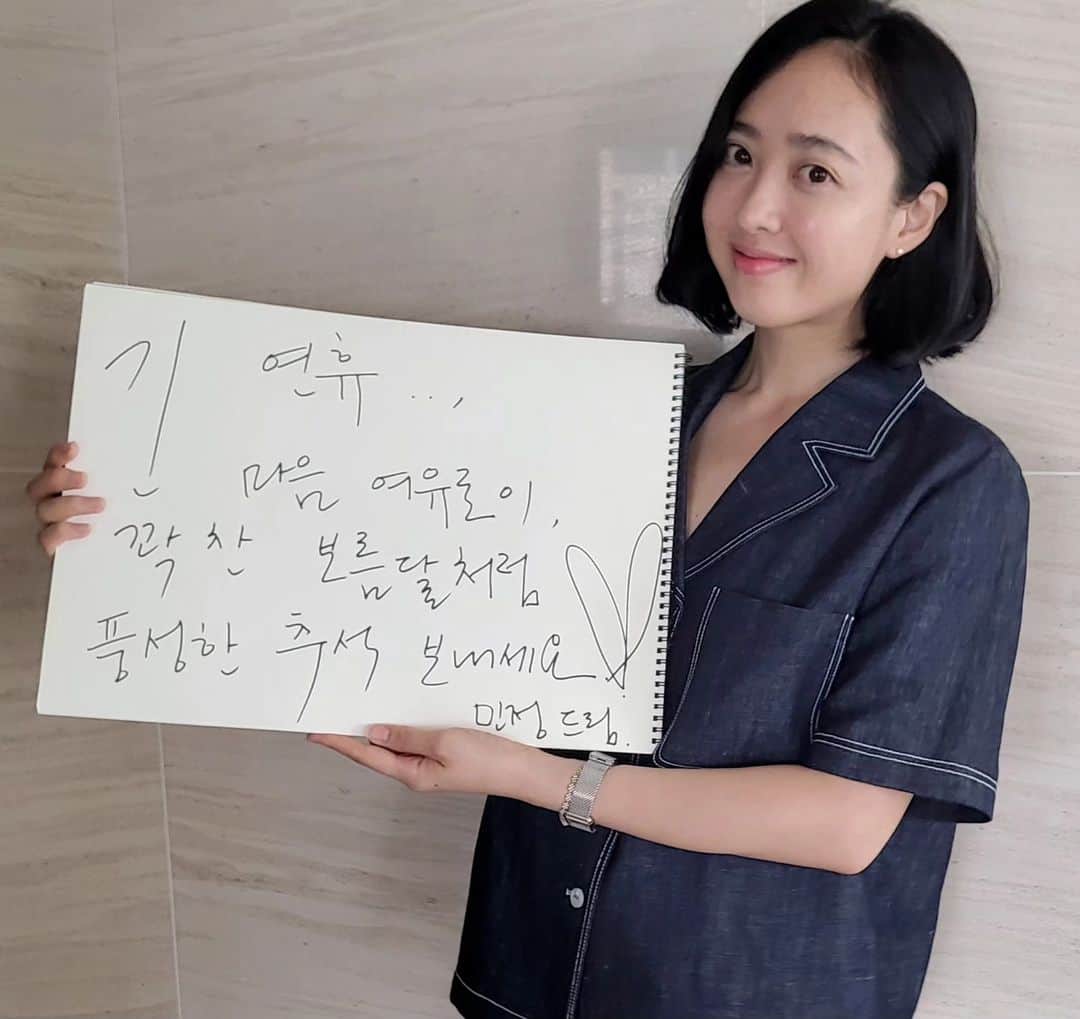 긴 연휴...,
마음 여유로이,
꽉 찬 보름달처럼
풍성한 추석 보내세요
민정 드림.